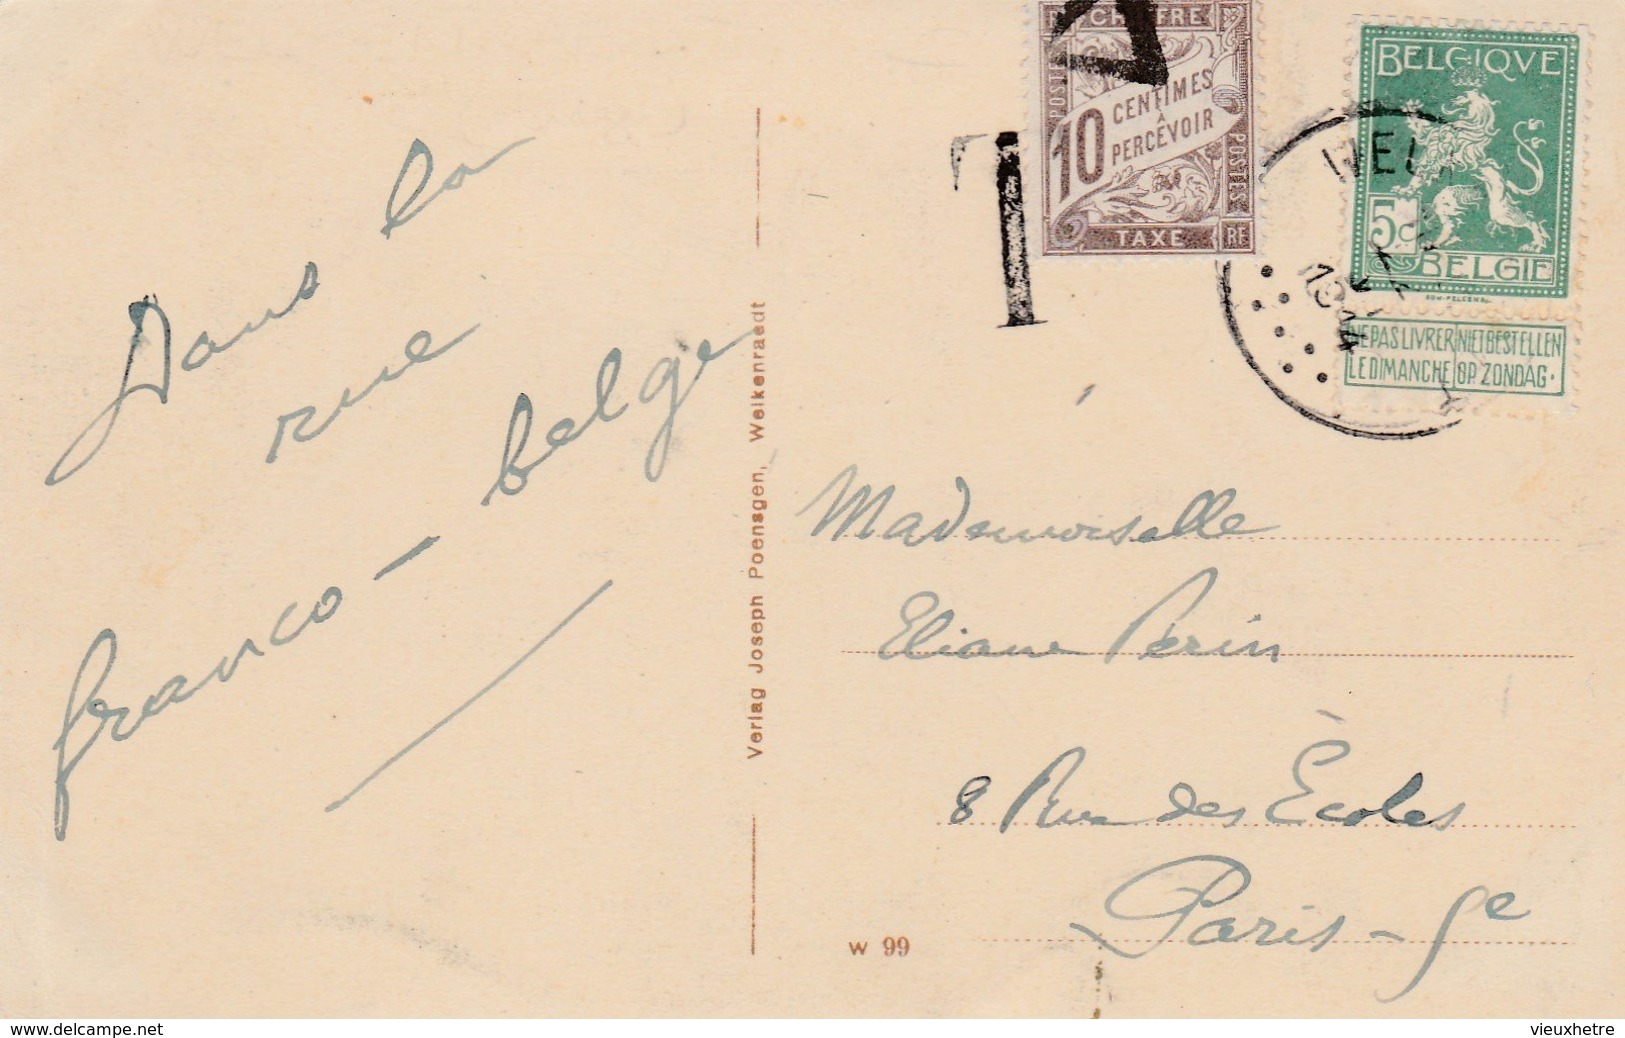 Dans la
rue
franco - belge
Verlag Joseph Poensgen, Welkenraedt
CHIFFRE
POSTES
10
CENTIMES
À
PERCEVOIR
POSTES
TAXE
RF
T
BELGIQVE
5c
BELGIE
NE PAS LIVRER NIET BESTELLEN
LE DIMANCHE OP ZONDAG.
WELK
1914
Mademoiselle
Eliane Perin
8 Rue des Écoles
Paris - 5e
W 99
www.delcampe.net
vieuxhetre